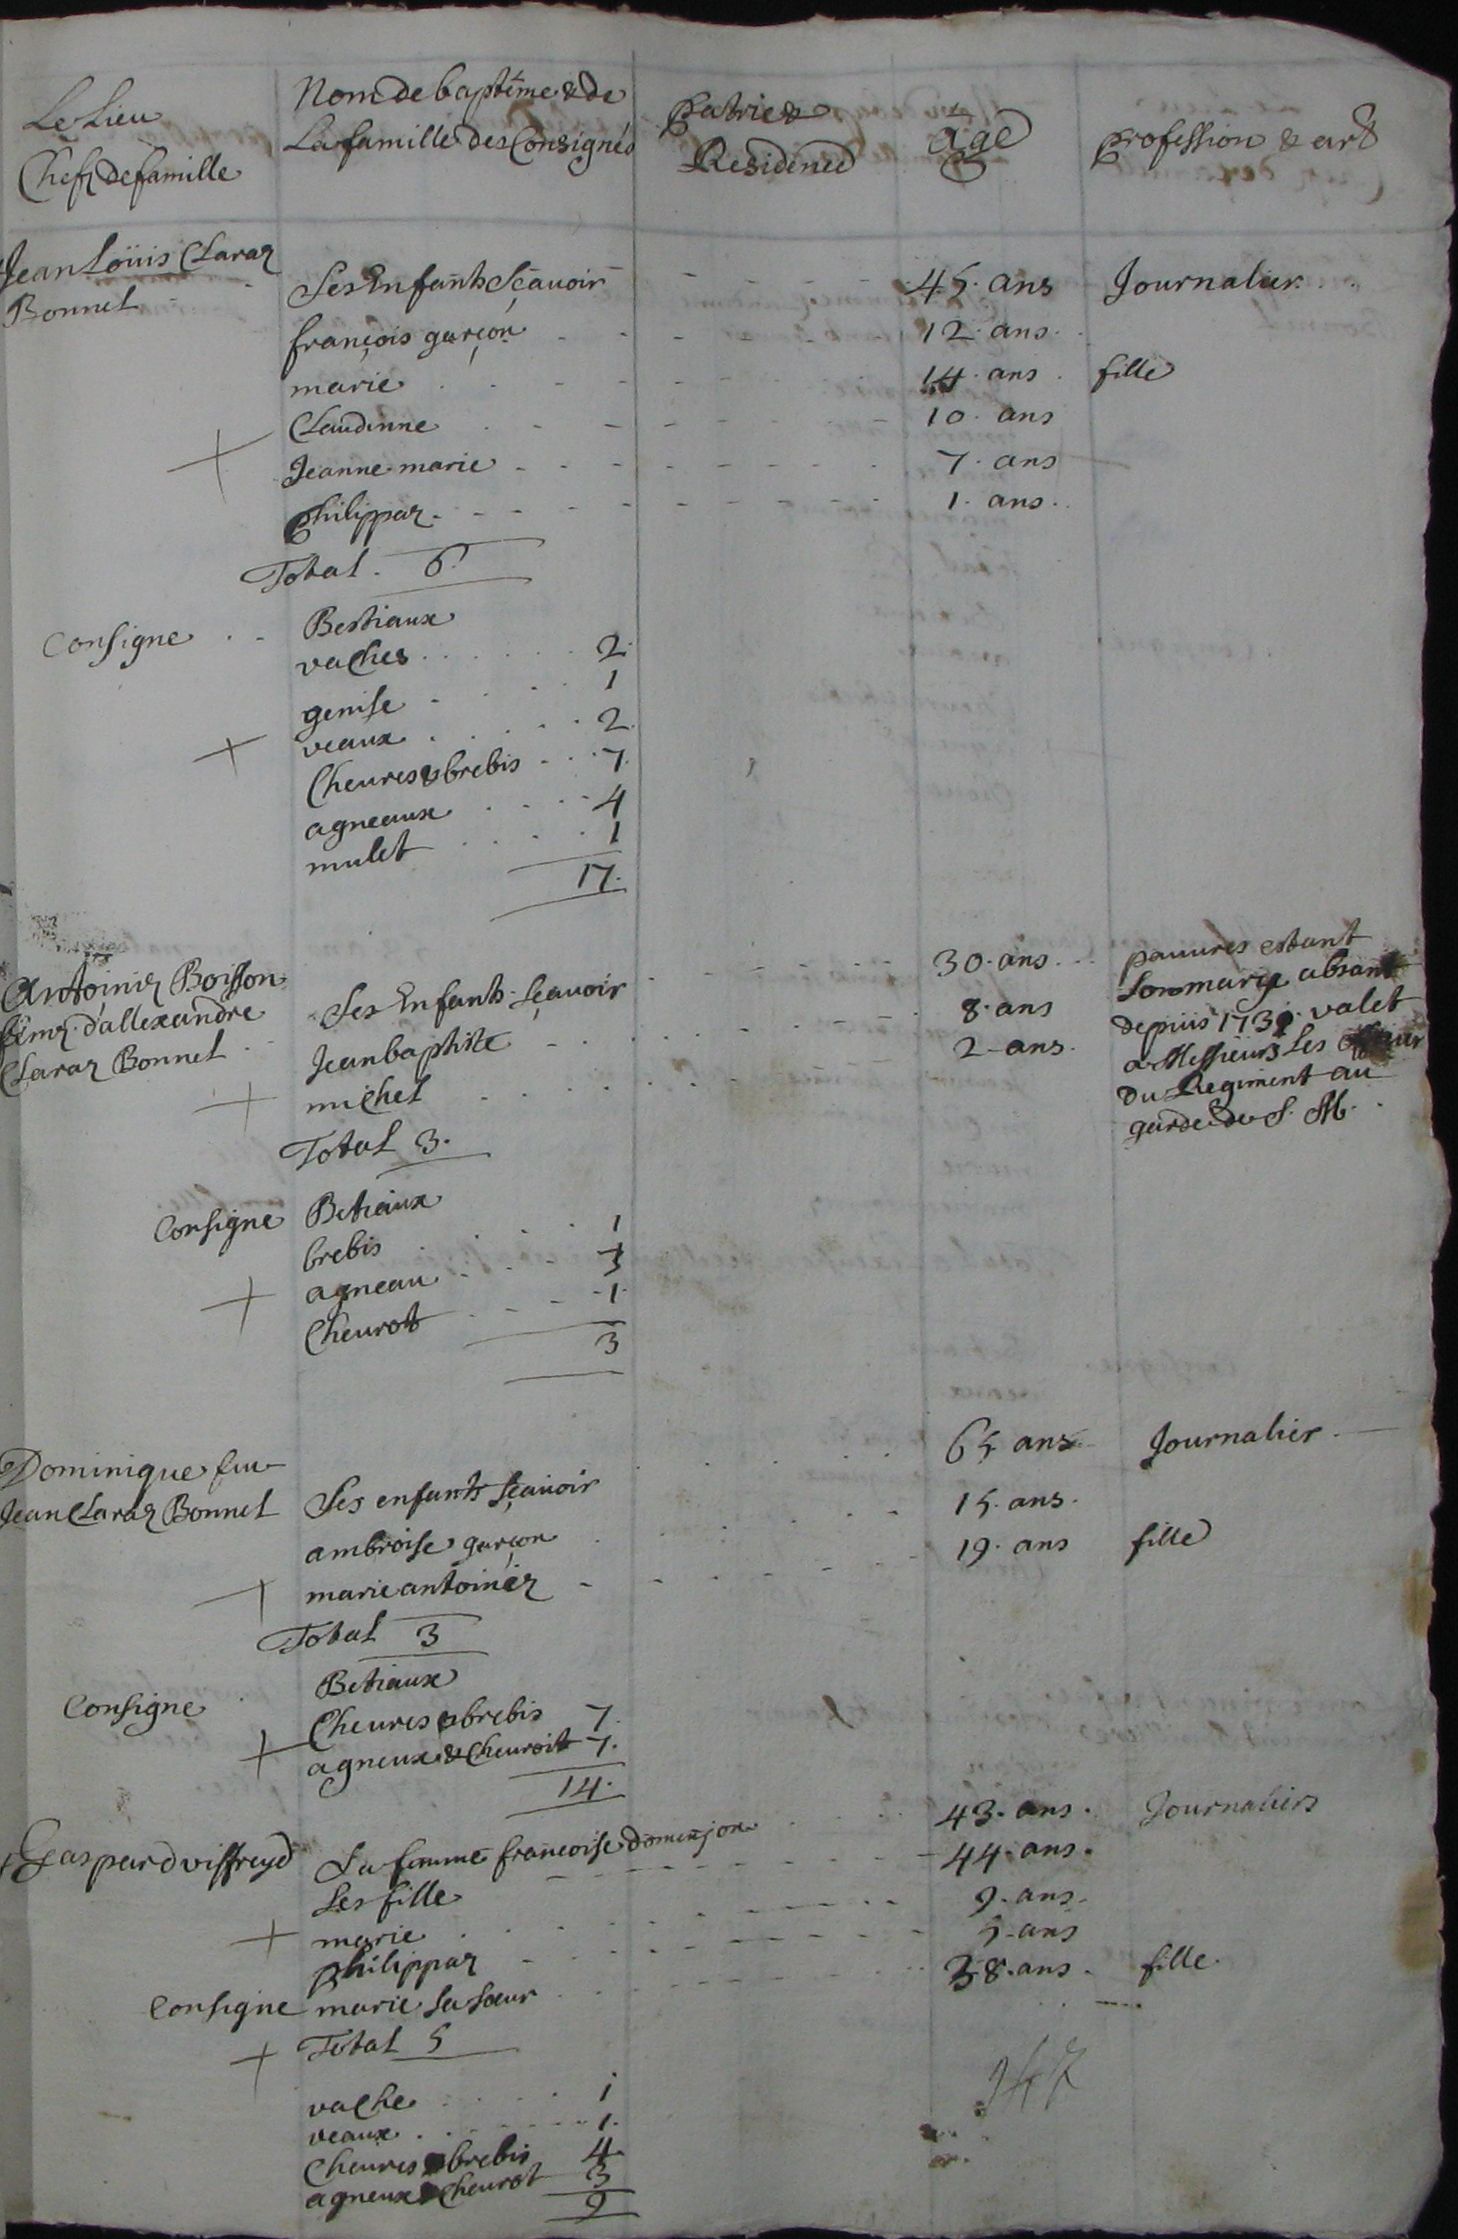 Le Lieu
Chefz de famille
Nom de baptême & de
La famille des Consignés
patrie &
Residence
age
profession & art
Jean Loüis Claraz
Bonnet
45. ans Journalier
Ses Enfants Sçauoir
françois garçon 12. ans
marie 14. ans fille
Claudinne 10. ans
Jeanne marie 7. ans
philippaz 1. ans
Total 6.
Consigne Bestiaux
vaches 2
genise 1
veaux 2
Cheures & brebis 7
agneaux 4
mulet 1
17.
Antoiniz Boisson
fem̃ d'allexandre
Claraz Bonnet
30. ans
pauures estant
Son mary absant
depuis 173 valet
a Messieurs Les
du Regiment au
garde de S. M.
Ses Enfants Sçauoir
Jean baptiste 8. ans
michel 2 ans
Total 3.
Consigne Betiaux
brebis 1
agneau 1
Cheurot 1
3
Dominique feu
Jean Claraz Bonnet
65 ans Journalier
Ses enfants Sçauoir
ambroise garçon 15. ans
marie antoiniz 19. ans fille
Total 3
Consigne Betiaux
Cheures & brebis 7
agneux & Cheuroit 7.
14.
Gaspard viffreyd 43. ans. Journaliers
La femme françoise domenjon 44. ans.
Ses fille
marie 9. ans
philippaz 5 ans
Consigne marie Sa Sœur 38. ans fille
Total 5
vache 1
veaux 1.
Cheures & brebis 4
agneux & Cheurot 3
9